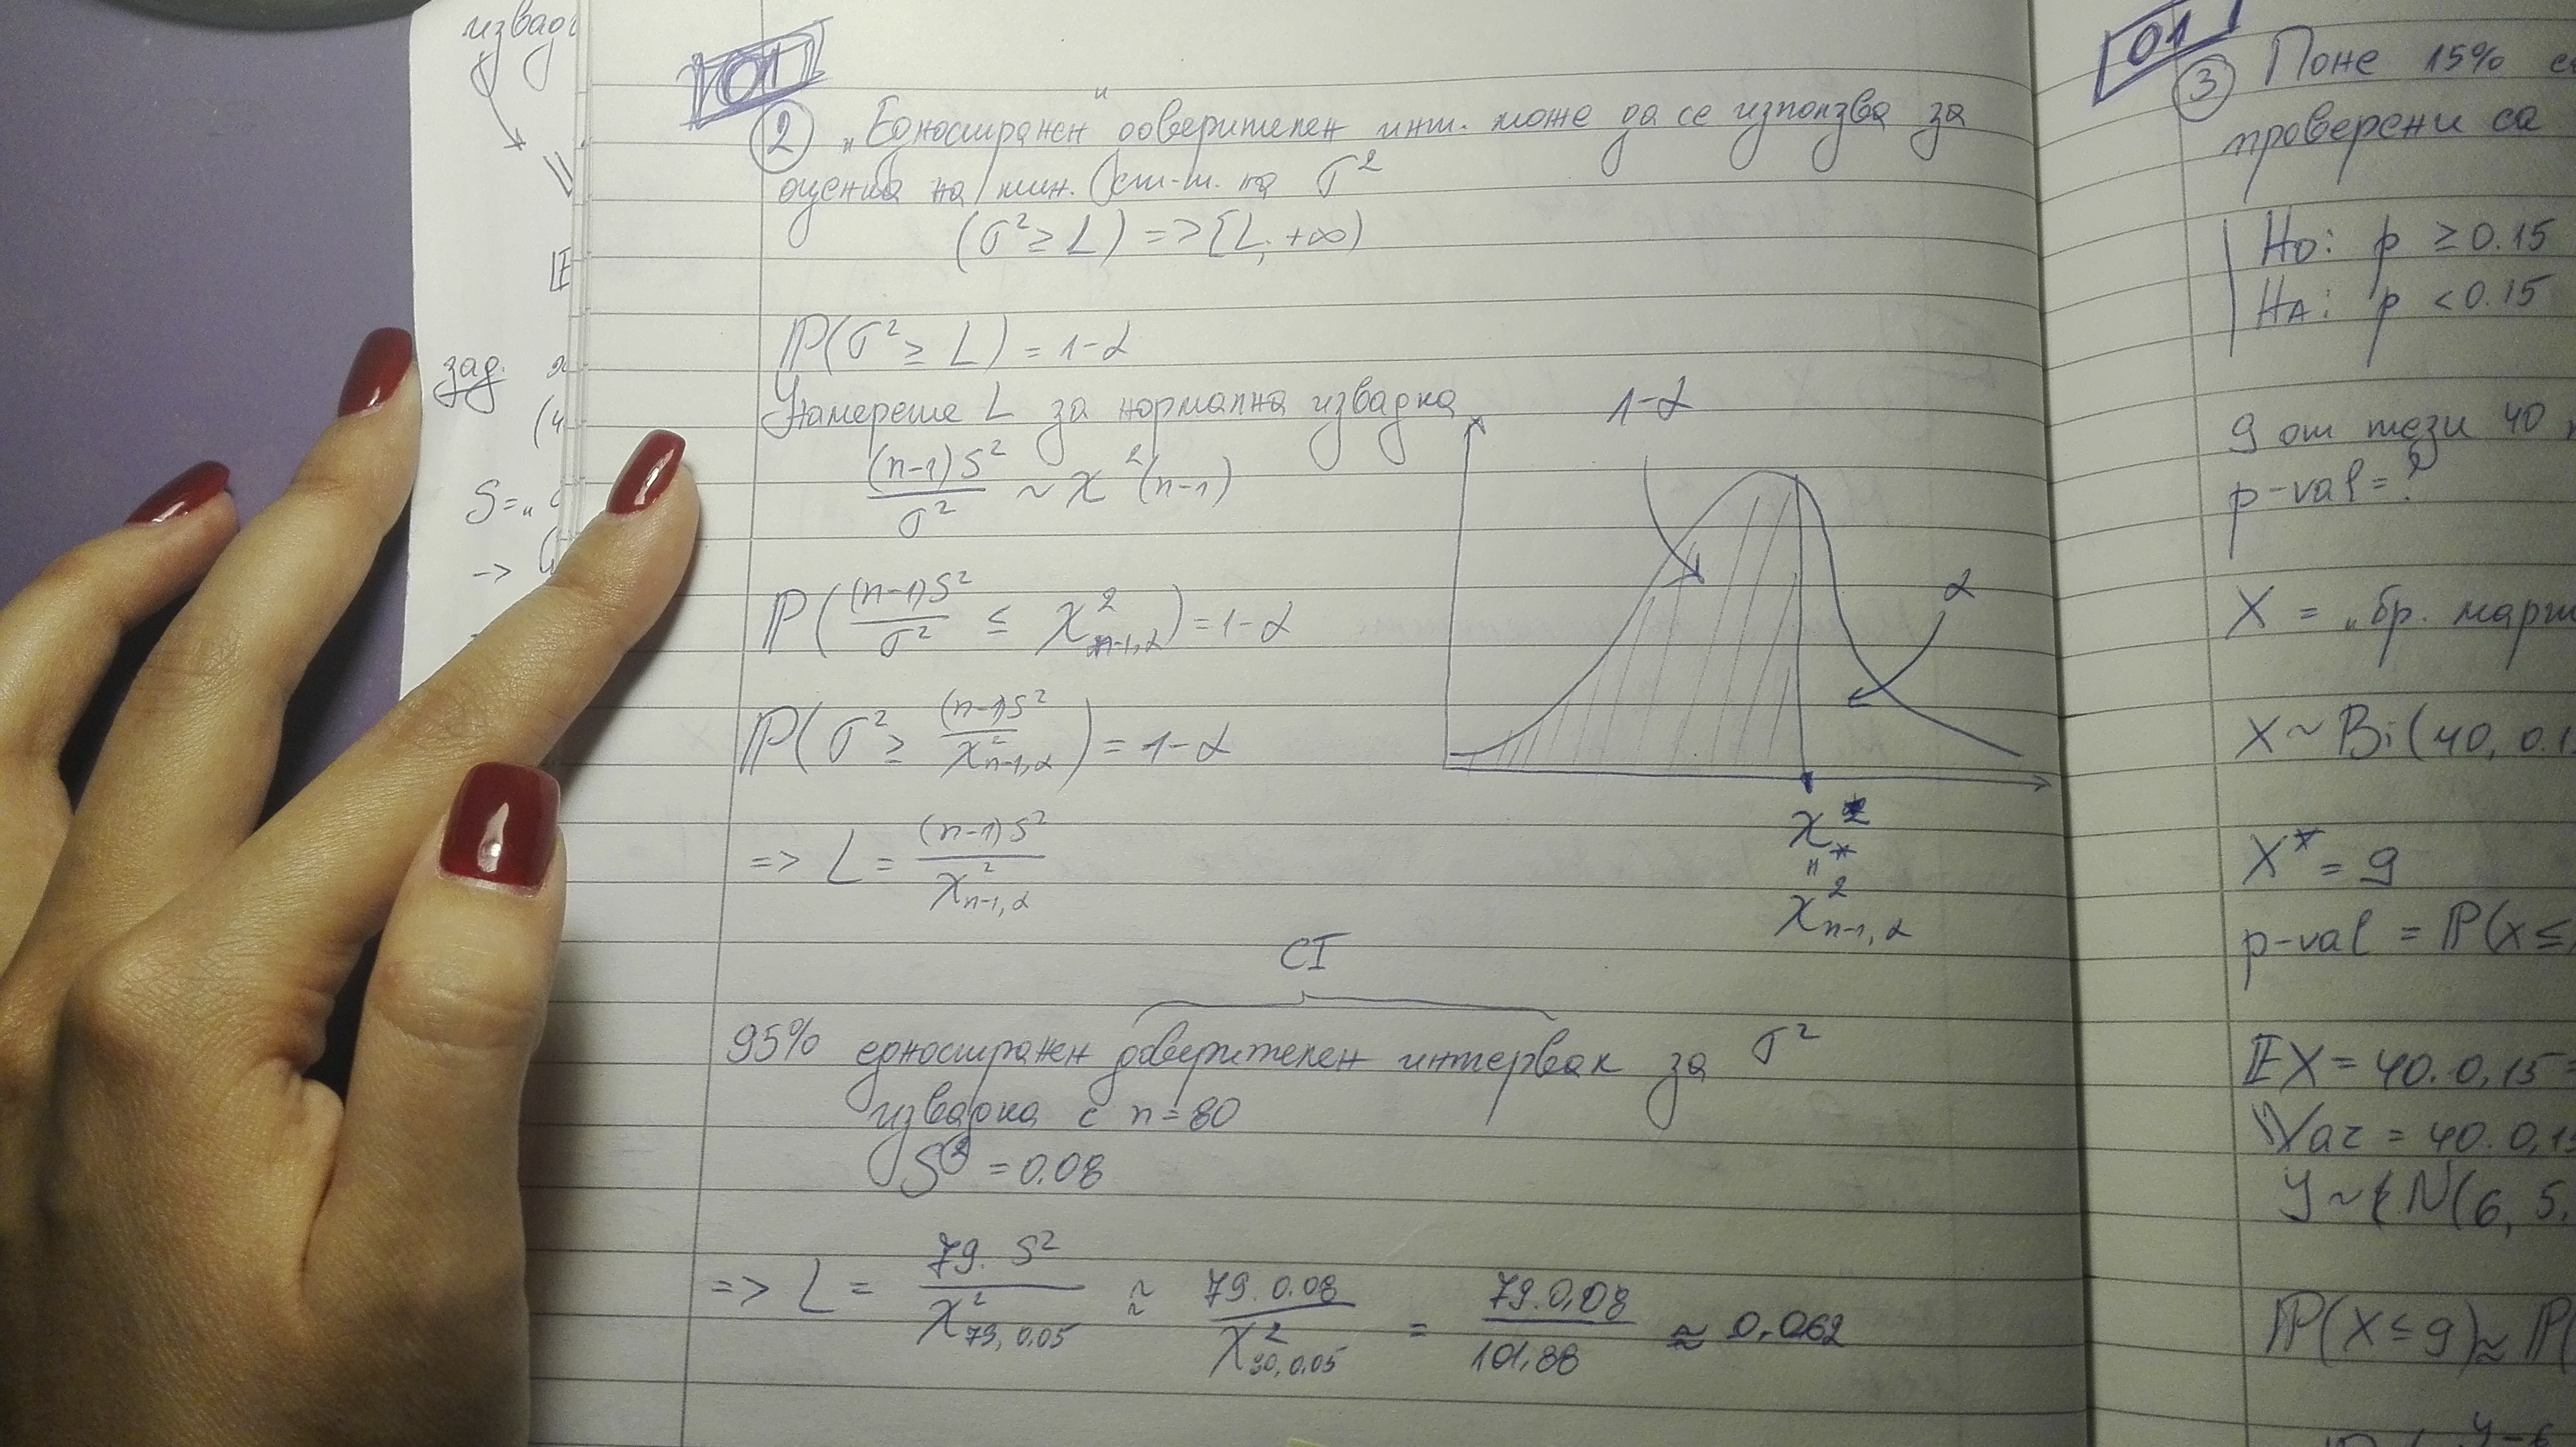 извад
зад.
S=„
->
01
② „Едностранен" доверителен инт. може да се използва за
оценка на мин. ст-т. на σ²
(σ² ≥ L) => [L, +∞)
ℙ(σ² ≥ L) = 1-α
Намерете L за нормална извадка
(n-1)S²/σ² ~ χ²(n-1)
1-α
α
ℙ((n-1)S²/σ² ≤ χ²n-1,α) = 1-α
ℙ(σ² ≥ (n-1)S²/χ²n-1,α) = 1-α
=> L = (n-1)S²/χ²n-1,α
χ²*
"
χ²n-1,α
CI
95% едностранен доверителен интервал за σ²
извадка с n=80
S² = 0.08
=> L = 79. S²/χ²79, 0.05 ≈ 79. 0.08/χ²80, 0.05 = 79. 0,08/101,88 ≈ 0.062
01
③ Поне 15%
проверени са
H0: p ≥ 0.15
HA: p < 0.15
9 от тези 40
p-val = ?
X = „бр.
X ~ Bi(40, 0.1
X* = 9
p-val = ℙ(X ≤
𝔼X = 40. 0,15 =
Var = 40. 0,15
Y ~ N(6, 5.
ℙ(X ≤ 9) ≈ ℙ(